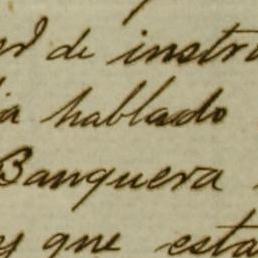 de instru
ia hablado
Banquera
y que esta